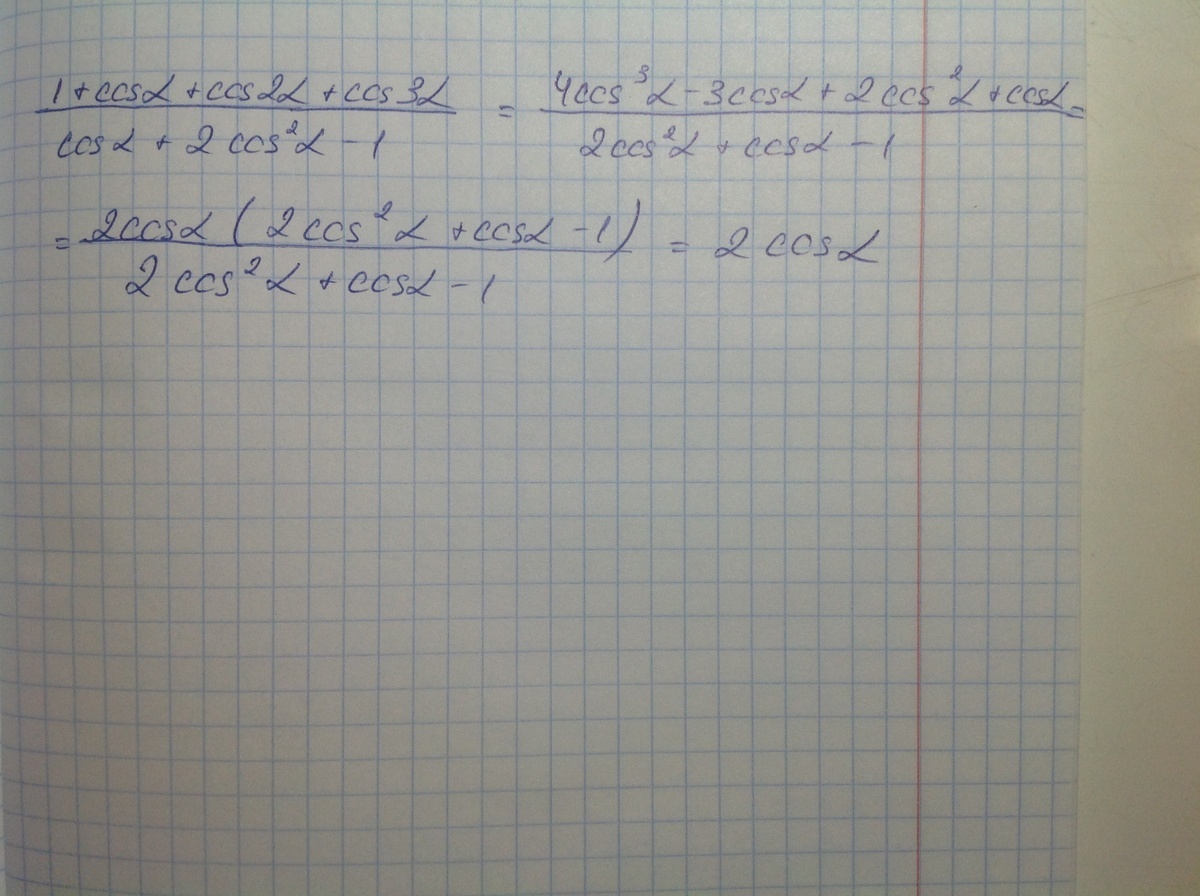 1+cosα+cos2α+cos3α / cosα+2cos²α-1 = 4cos³α-3cosα+2cos²α+cosα / 2cos²α+cosα-1 =
= 2cosα(2cos²α+cosα-1) / 2cos²α+cosα-1 = 2cosα